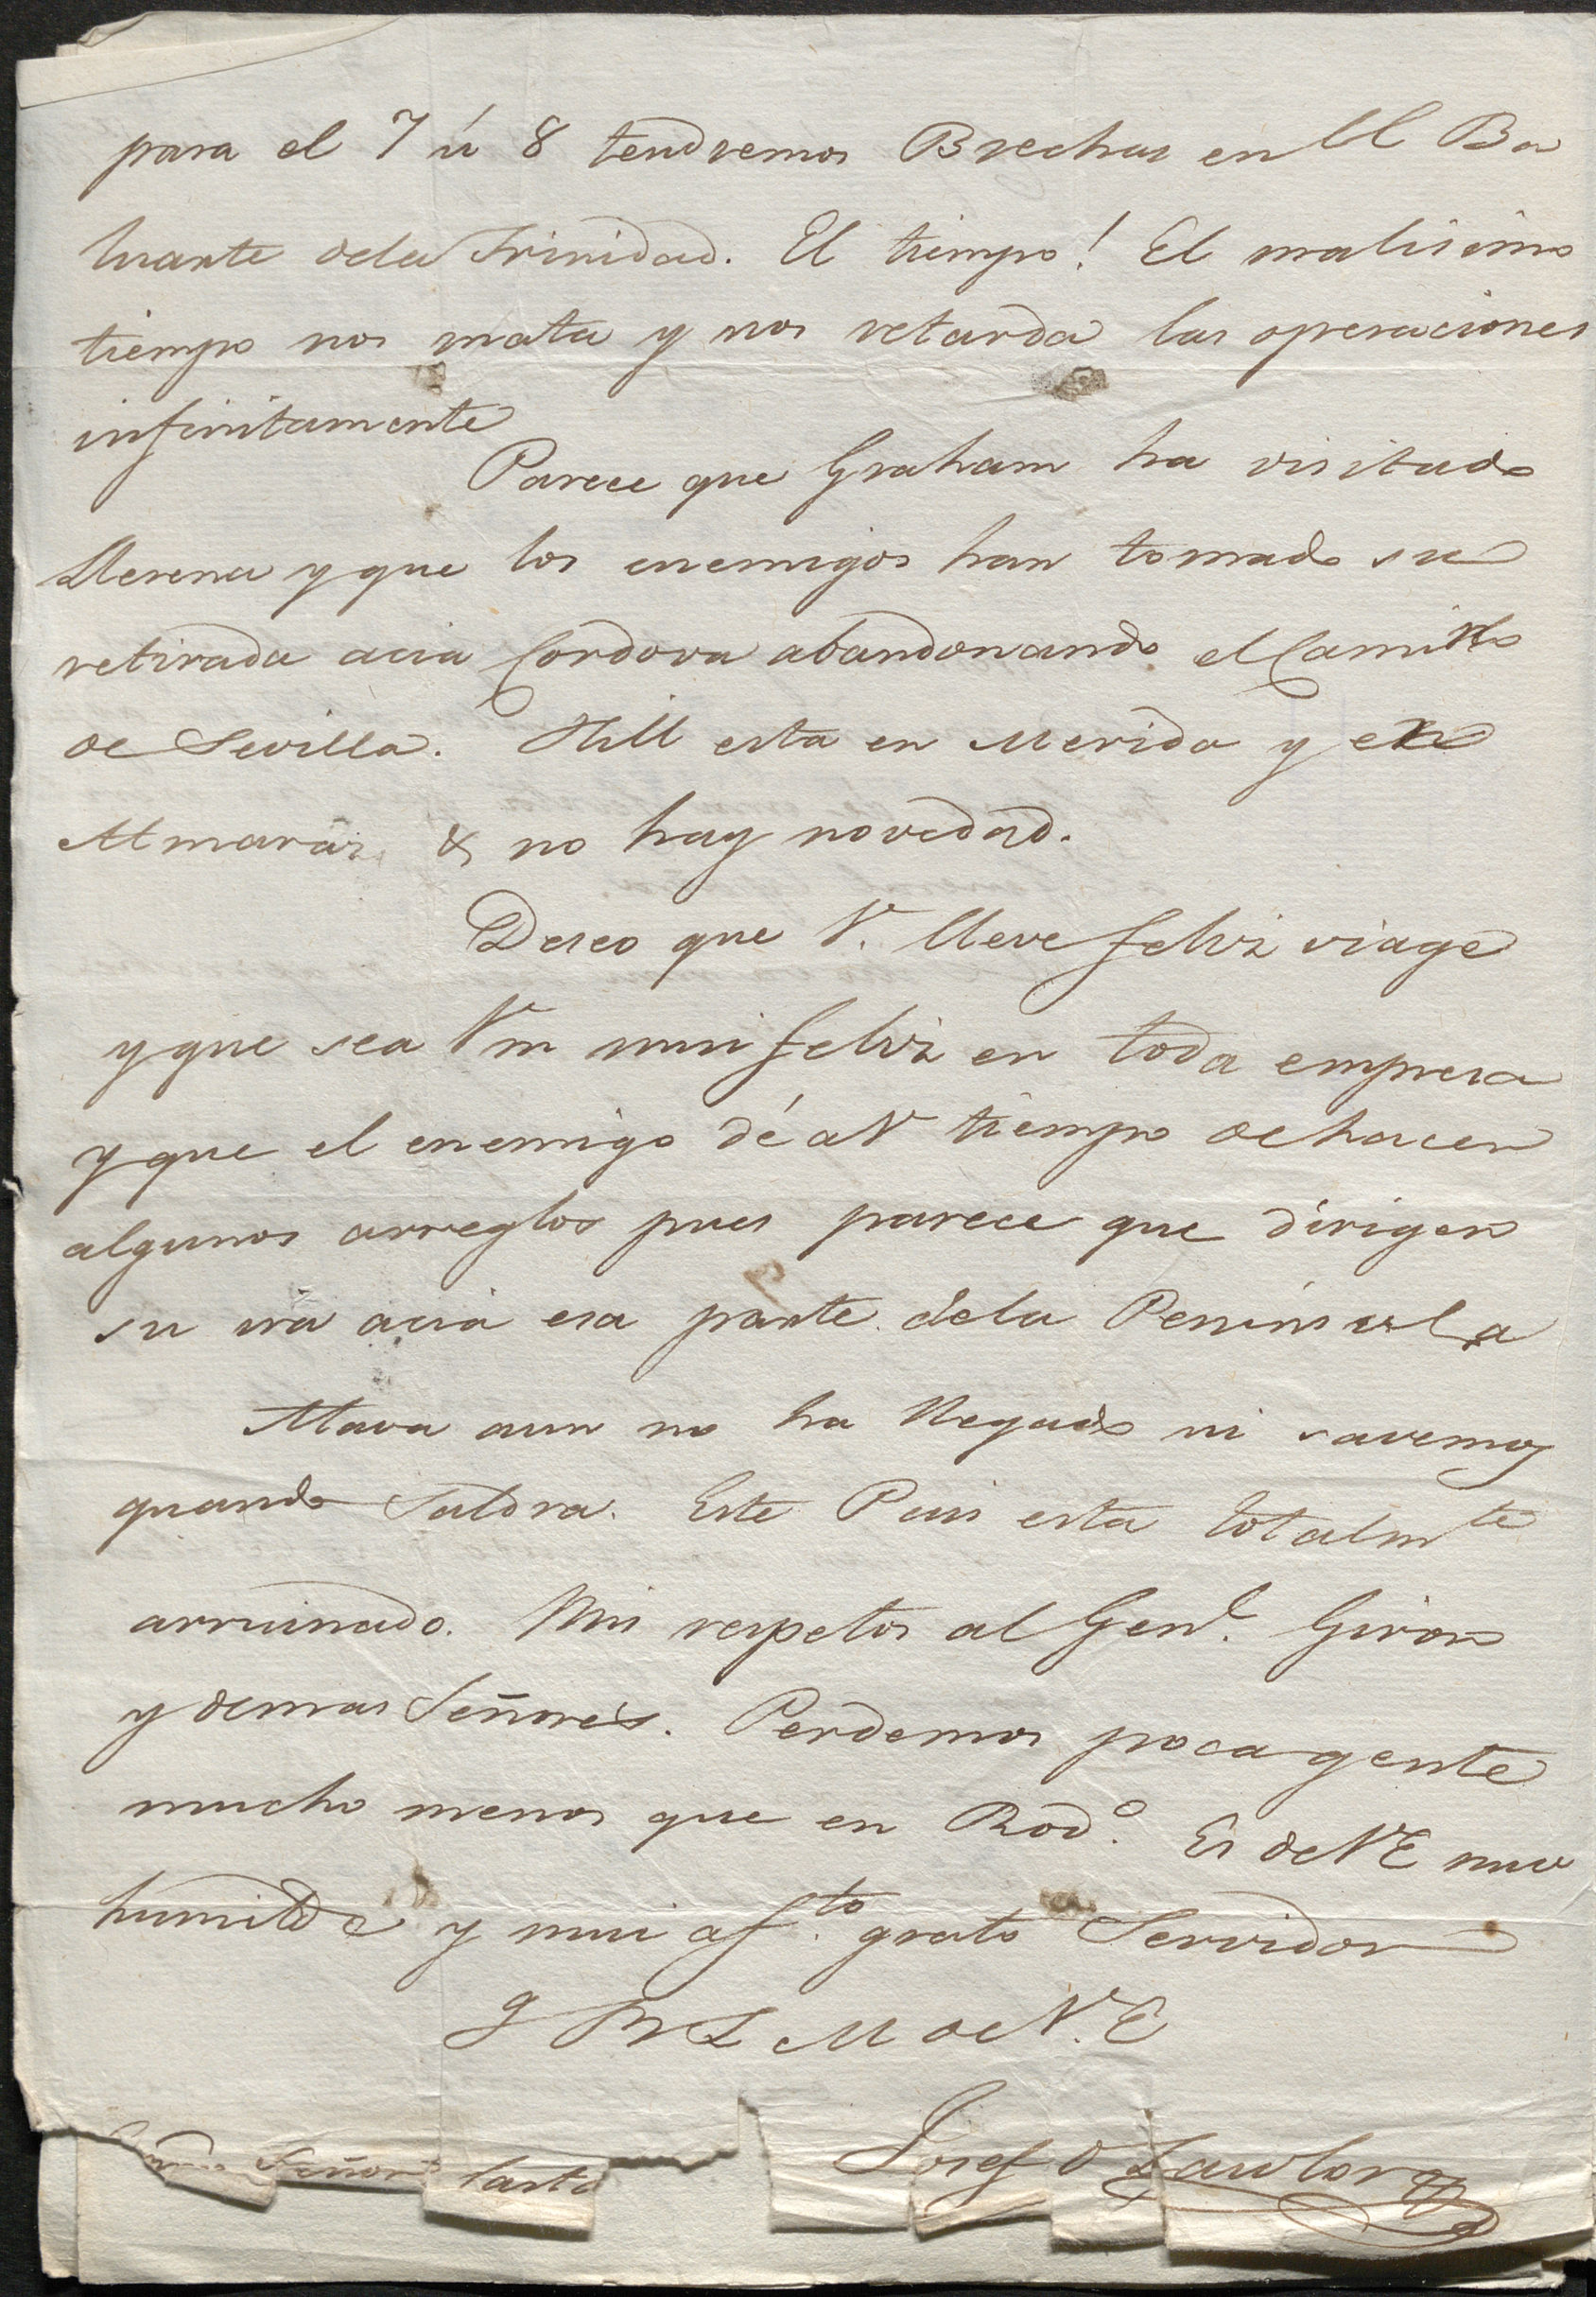 para el 7 ú 8 tendremos Brechas en el Ba
luarte dela Trinidad. El tiempo! El malisimo
tiempo nos mata y nos retarda las operaciones
infinitamente
Parece que Graham ha visitado
Llerena y que los enemigos han tomado su
retirada acia Cordova abandonando el Camino
de Sevilla. Hill esta en Merida y en
Almaraz & no hay novedad.
Deseo que V. lleve feliz viage
y que sea Vm mui feliz en toda empresa
y que el enemigo dé a V tiempo de hacer
algunos arreglos pues parece que dirigen
su ira acia esa parte dela Peninsula
Alava aun no ha llegado ni savemos
quando Saldra. Este Pais esta totalmte
arruinado. Mis respetos al Genl. Giron
y demas Señores. Perdemos poca gente
mucho menos que en Rodo. Es de VE mui
humilde y mui afto. grato Servidor
Q B L M de V.E
Josef O Lawlor
Señor Casta